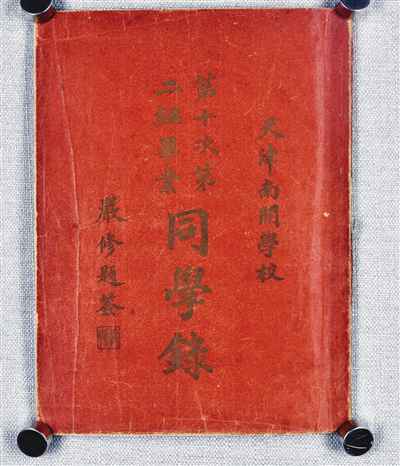 天津南開學校
第十次第
二組畢業
同學錄
嚴修題簽